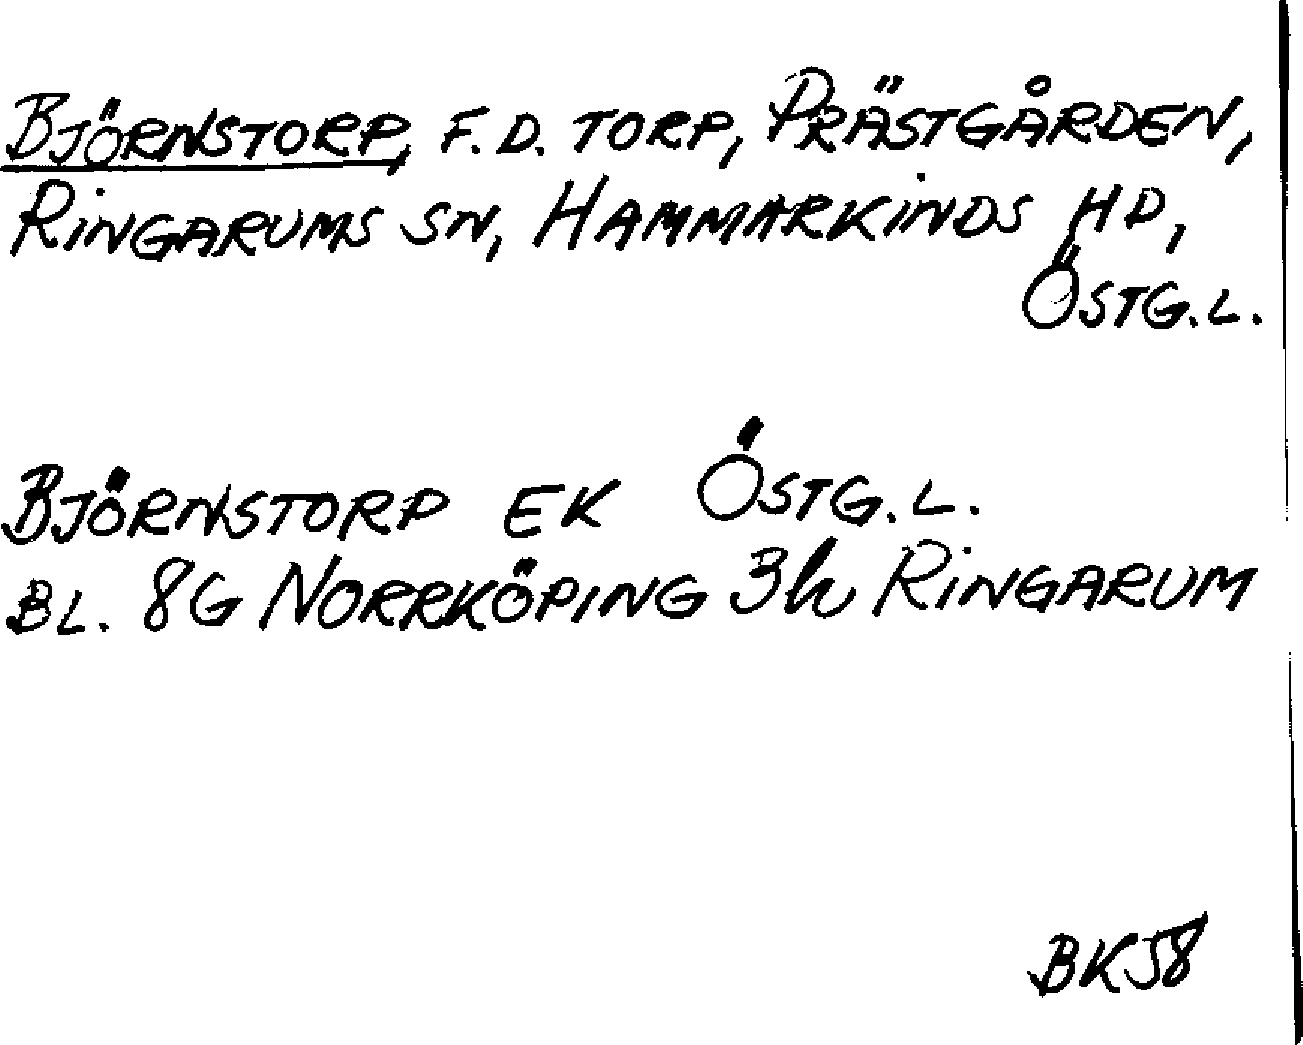 BJÖRNSTORP, F.D. TORP, PRÄSTGÅRDEN,
RINGARUMS SN, HAMMARKINDS HD,
ÖSTG.L.
BJÖRNSTORP EK ÖSTG.L.
BL. 8G NORRKÖPING 3h RINGARUM
BK58